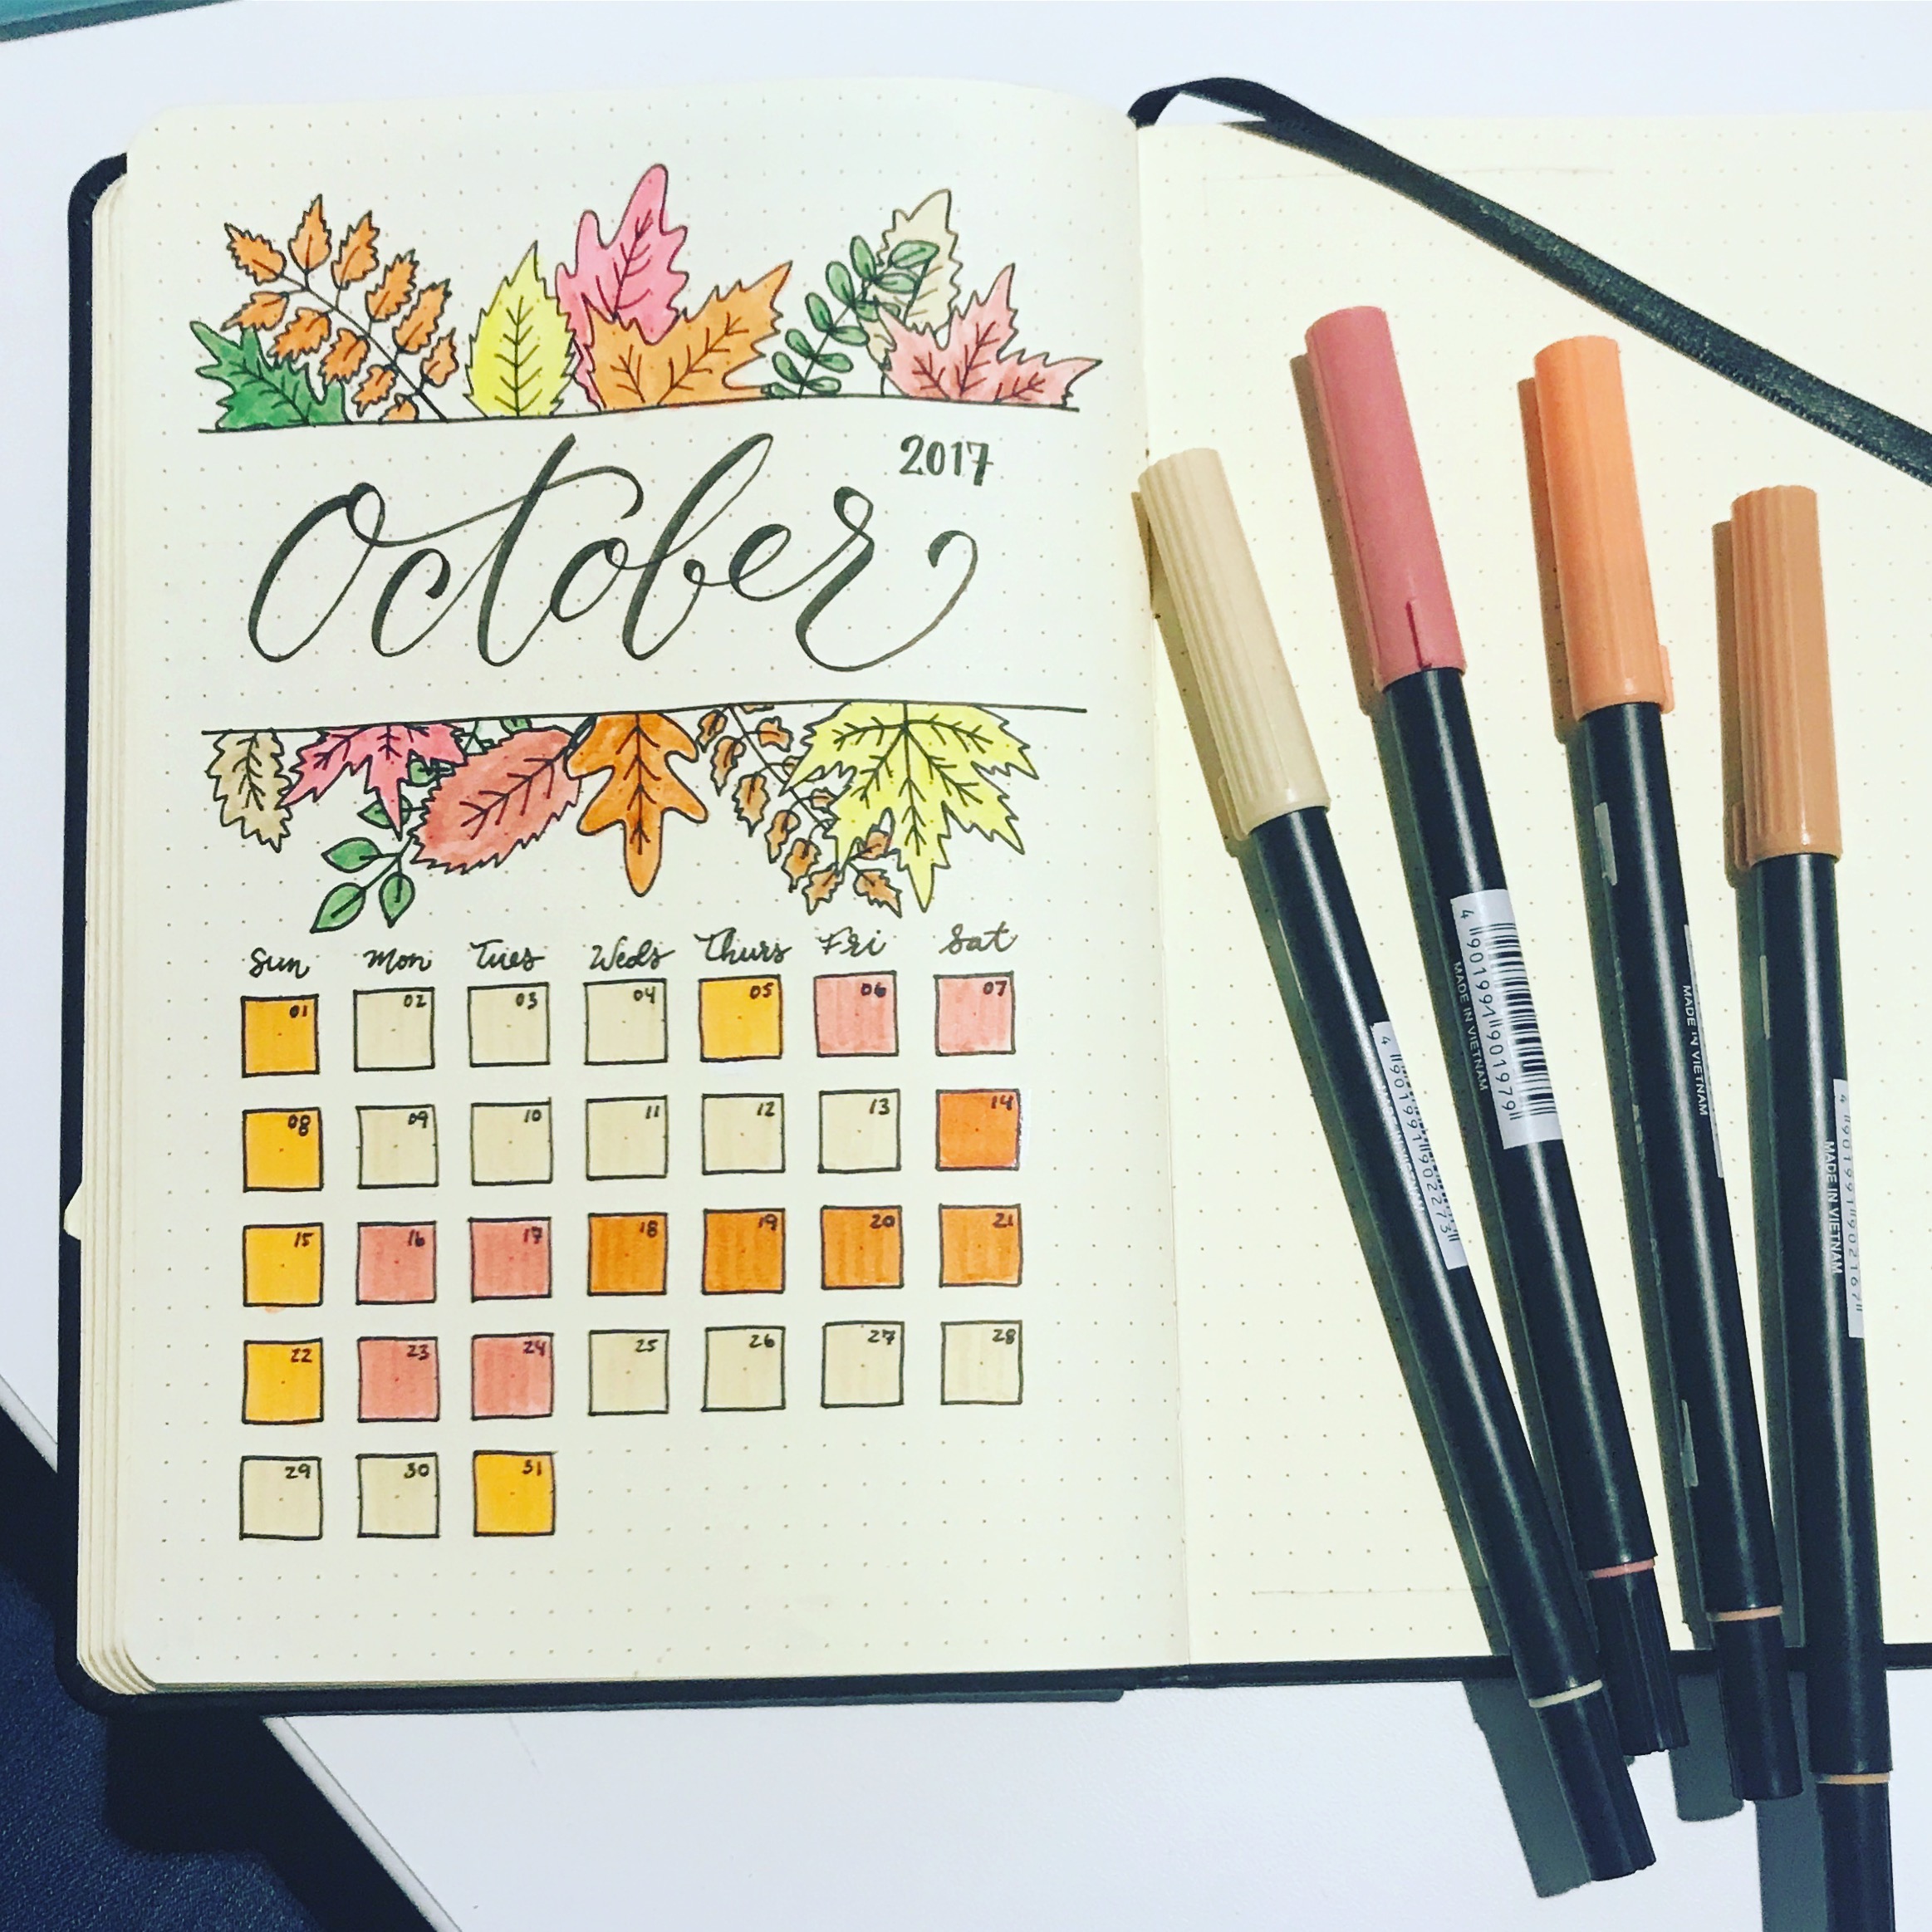 2017
October
Sun Mon Tues Weds Thurs Fri Sat
01 02 03 04 05 06 07
08 09 10 11 12 13 14
15 16 17 18 19 20 21
22 23 24 25 26 27 28
29 30 31
MADE IN VIETNAM
4 901991 901979
MADE IN VIETNAM
MADE IN VIETNAM
4 901991 902167